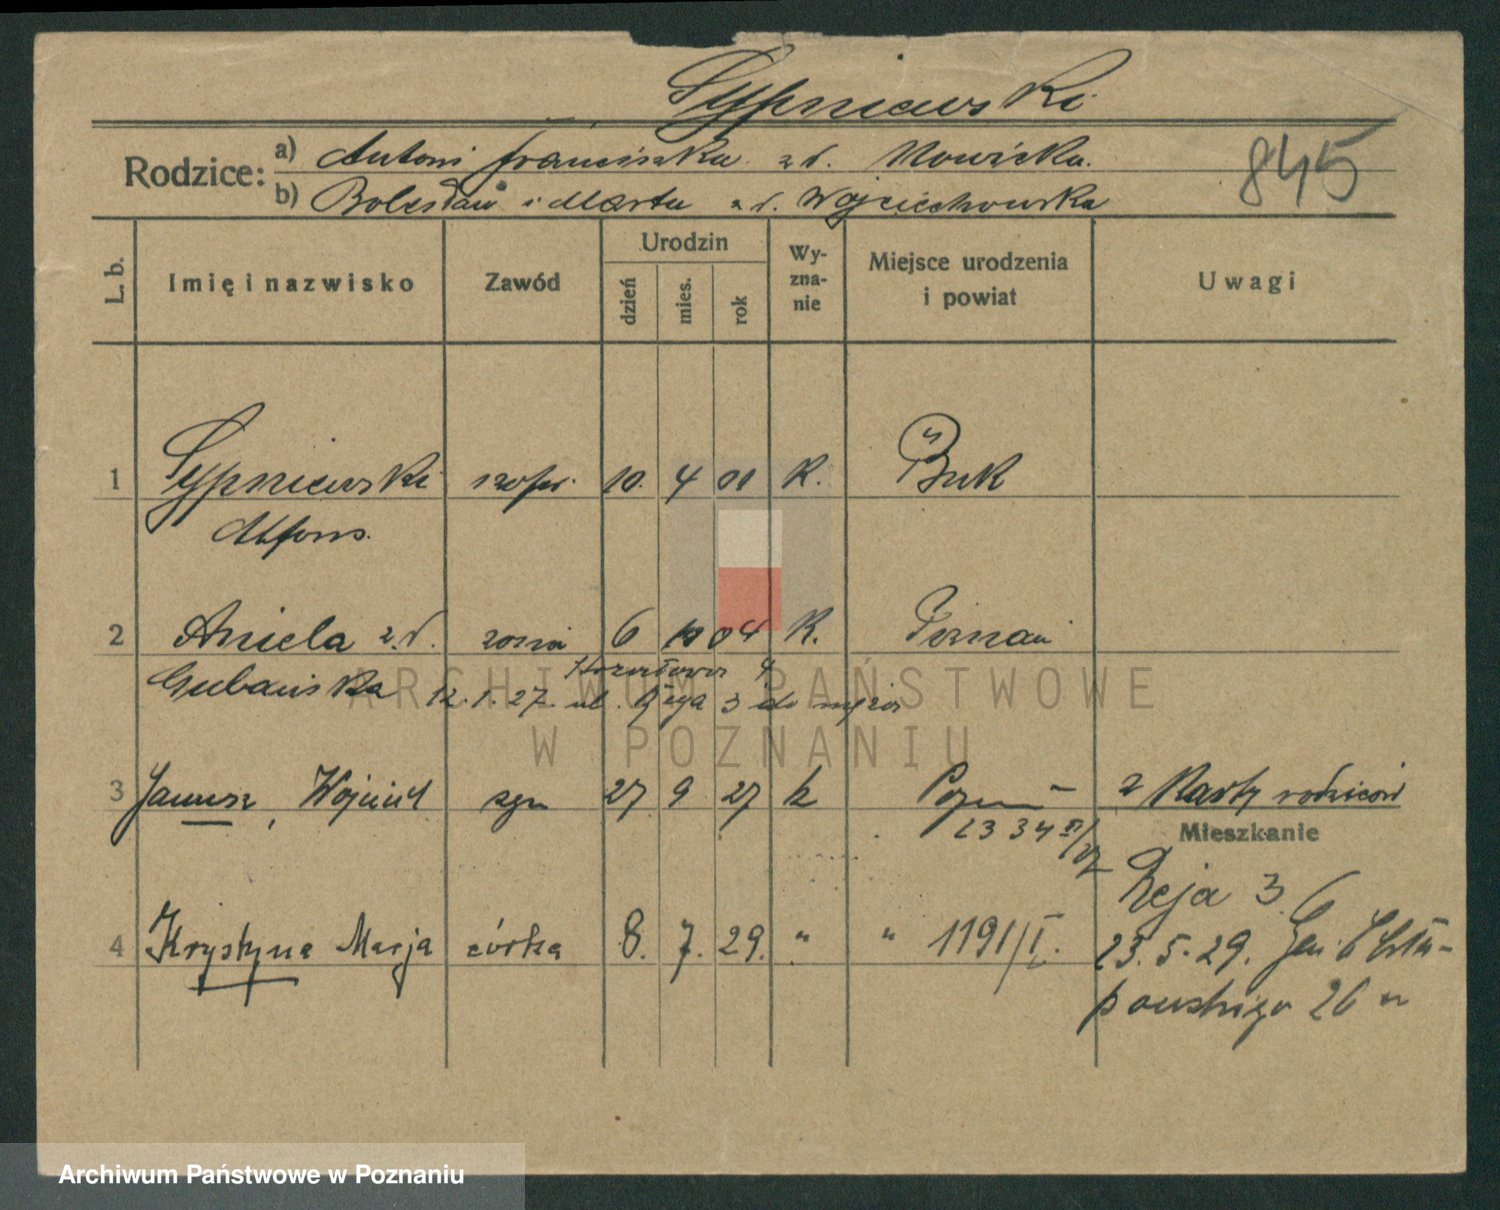 Sypniewski
Rodzice: a) Antoni Franciszka z d. Nowicka.
b) Bolesław i Marta z d. Wojciechowska
845
L. b. Imię i nazwisko Zawód Urodzin dzień mies. rok Wyznanie Miejsce urodzenia i powiat Uwagi
1 Sypniewski szofer. 10. 4 01 K. Buk
Alfons.
2 Aniela z d. żona 6 10 04 K. Poznań
Gubańska 12.1.27. ul. 3 do męża
3 Janusz, Wojciech syn 27 9 27 k Pozn z Karty rodziców
2334
Mieszkanie
Reja 3
4 Krystyna Marja córka 8. 7. 29. " " 1191/I.
23.5.29. Gen. Chła-
powskiego 26
ARCHIWUM PAŃSTWOWE
W POZNANIU
Archiwum Państwowe w Poznaniu